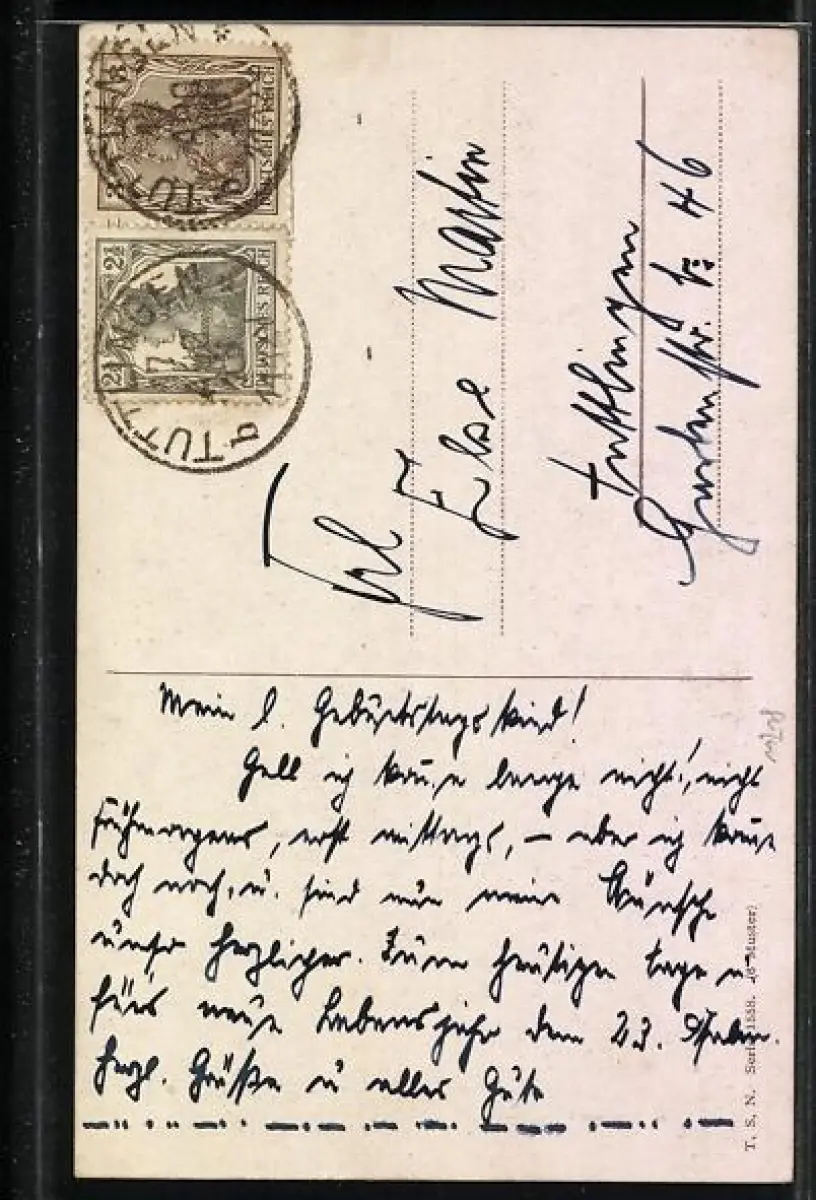 DEUTSCHES REICH
2½
2½
TUTTLINGEN
Frl
Else Martin
Tuttlingen
Gartenstr. 46
Mein l. Geburtstagskind!
Gell ich komme lange nicht!, nicht
frühmorgens, erst mittags, – aber ich komme
doch noch, u. sind nun meine Wünsche
umso herzlicher. Zum heutigen Tage u
fürs neue Lebensjahr dem 23.
Herzl. Grüße u alles Gute
T. S. N. Serie 1558. (6 Muster)